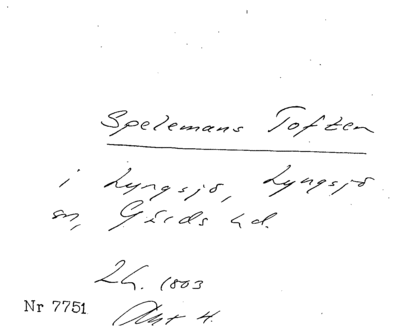 Spelemans Toften
i Lyngsjö, Lyngsjö
sn, Gärds hd.
Lh. 1803
Nr 7751
Akt 4.